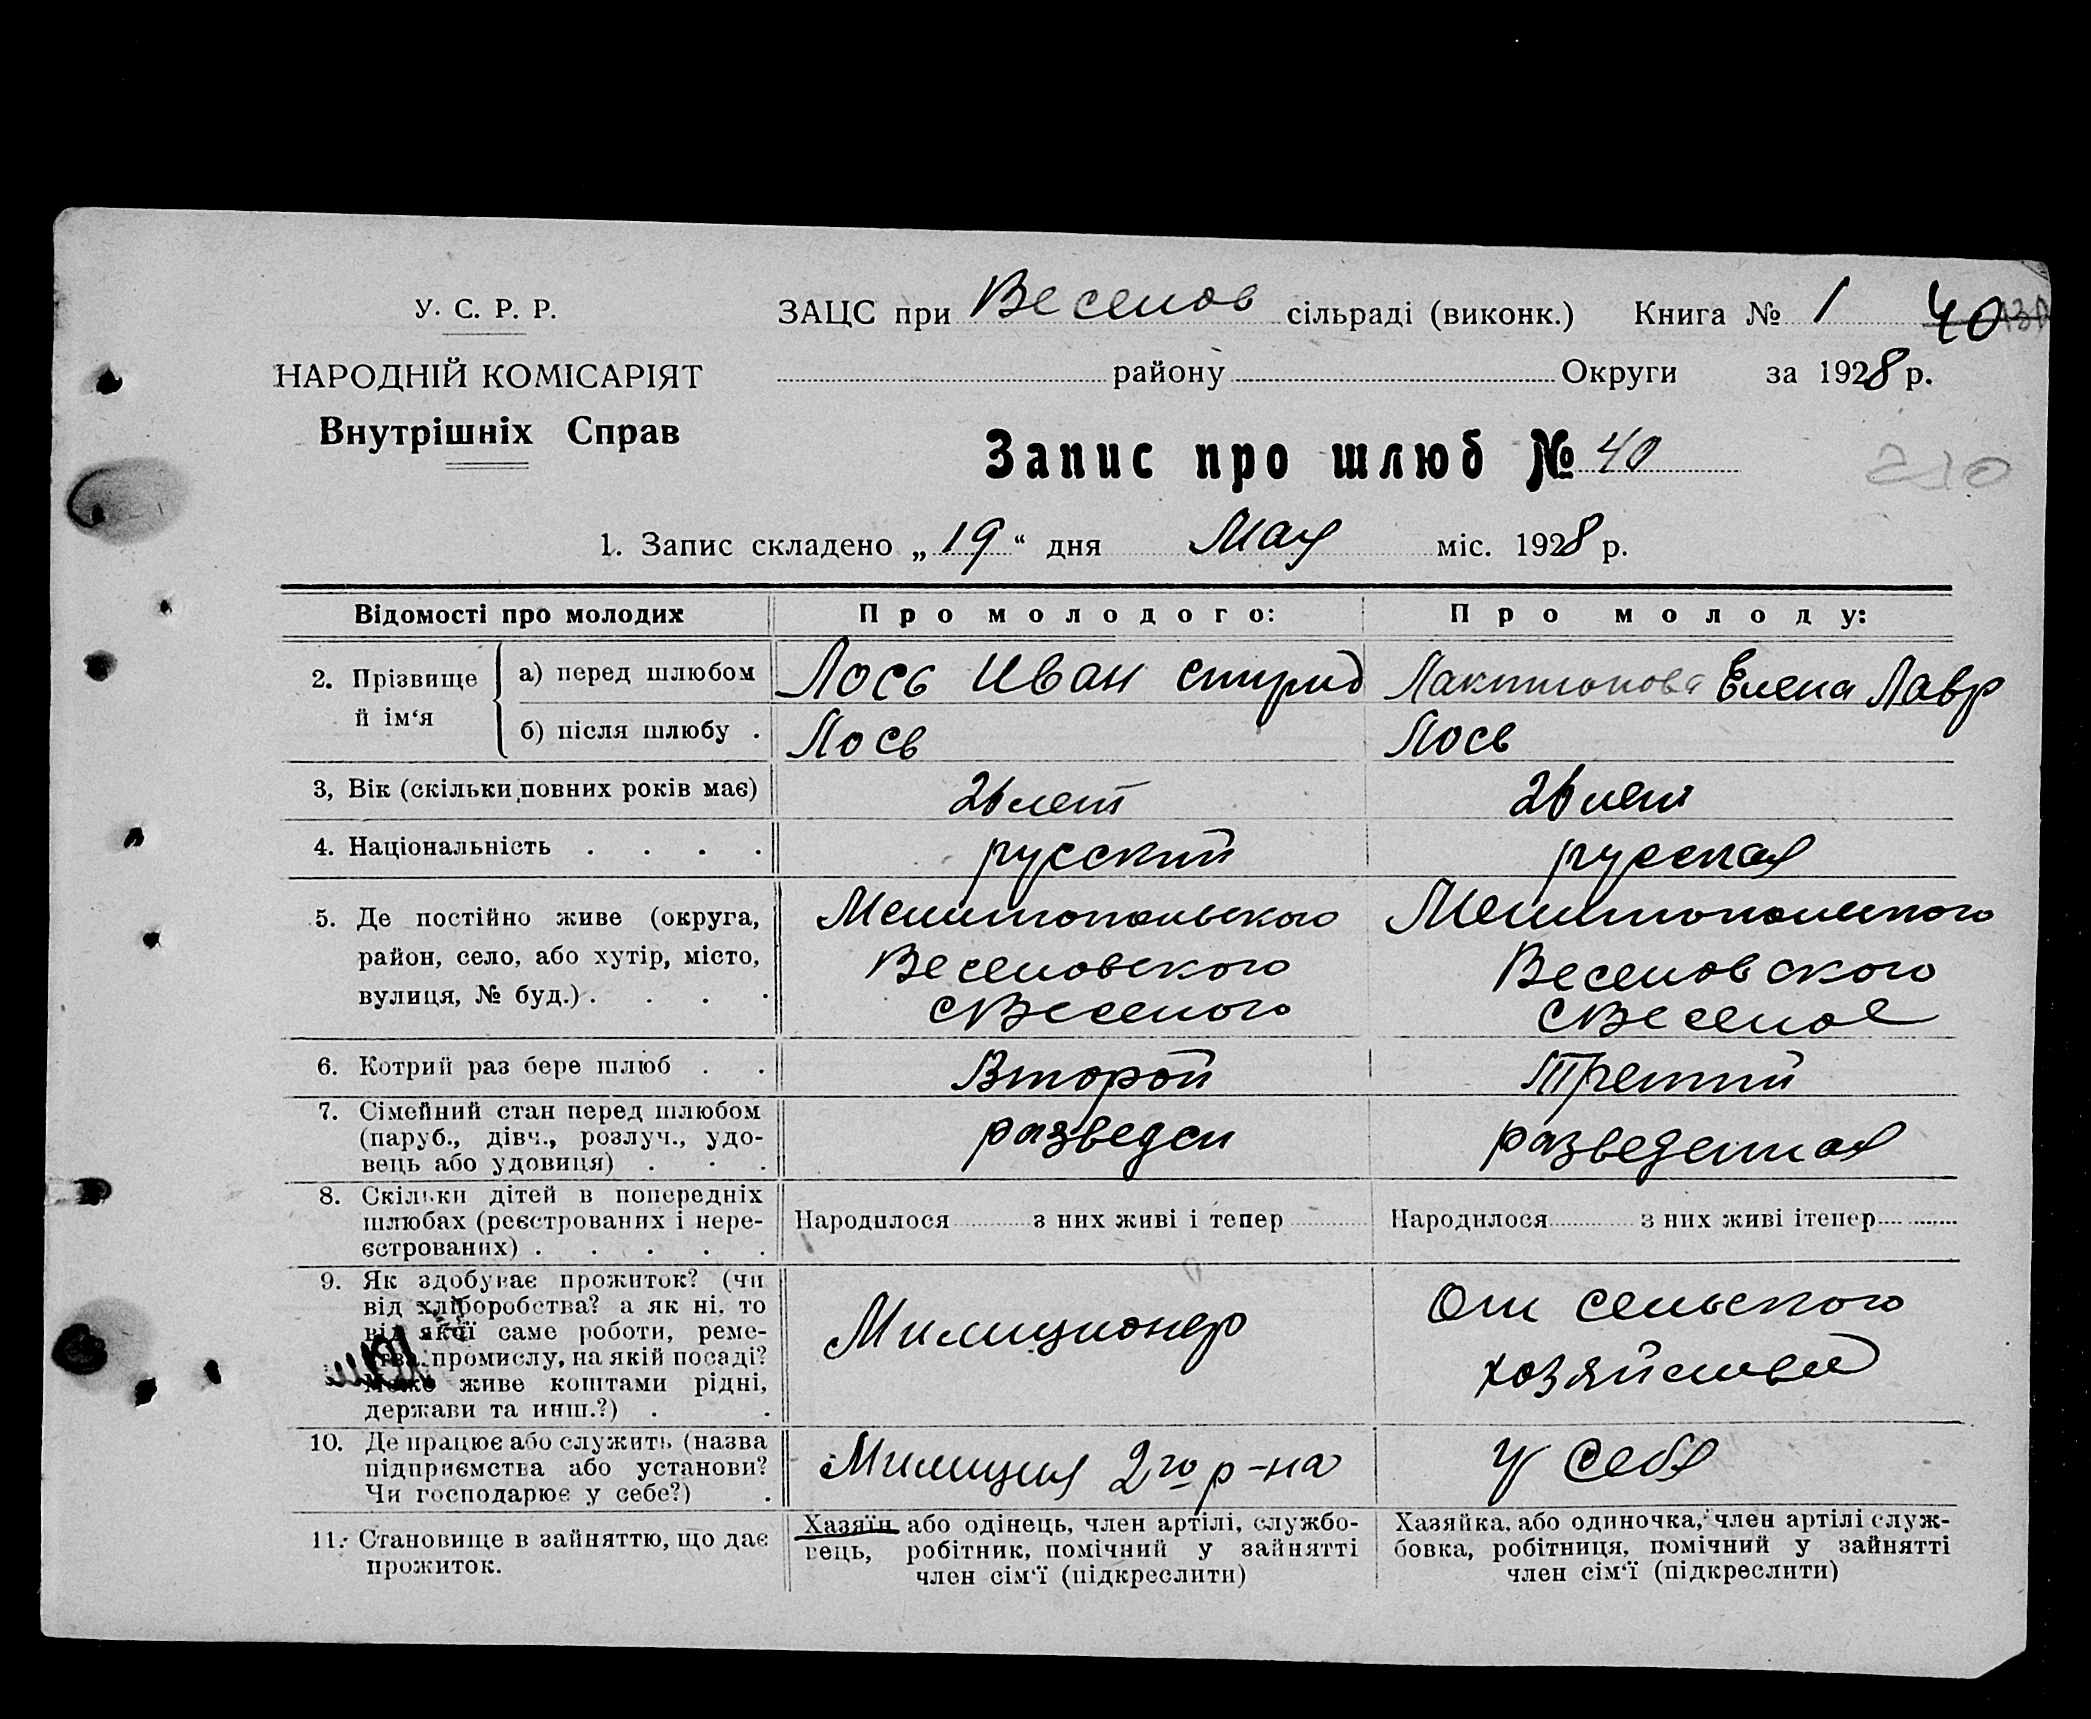 У. С. Р. Р.
НАРОДНІЙ КОМІСАРІЯТ
Внутрішніх Справ
ЗАЦС при Веселов сільраді (виконк.) Книга № 1 40
району Округи за 1928 р.
Запис про шлюб № 40
210
1. Запис складено „19“ дня Мая міс. 1928 р.
Відомості про молодих Про молодого: Про молоду:
2. Прізвище й ім‘я
а) перед шлюбом Лось Иван Спирид Лактионова Елена Лавр
б) після шлюбу . Лось Лось
3, Вік (скільки повних років має) 26 лет 26 лет
4. Національність . . . . русский русская
5. Де постійно живе (округа, Мелитопольского Мелитопольского
район, село, або хутір, місто, Веселовского Веселовского
вулиця, № буд.) . . . . с Веселого с Веселое
6. Котрий раз бере шлюб . . Второй Третий
7. Сімейний стан перед шлюбом
(паруб., дівч., розлуч., удо- разведен разведенная
вець або удовиця) . . .
8. Скільки дітей в попередніх
шлюбах (реєстрованих і нере- Народилося з них живі і тепер Народилося з них живі ітепер
єстрованих) . . . . .
9. Як здобуває прожиток? (чи
від хліборобства? а як ні, то От сельского
від якої саме роботи, реме- Милиционер
ства, промислу, на якій посаді? хозяйства
Може живе коштами рідні,
держави та инш.?) . .
10. Де працює або служить (назва
підприємства або установи? Милиция 2го р-на У себя
Чи господарює у себе?) .
11. Становище в зайняттю, що дає
прожиток.
Хазяїн або одінець, член артілі, службо-
вець, робітник, помічний у зайнятті
член сім‘ї (підкреслити)
Хазяйка, або одиночка, член артілі служ-
бовка, робітниця, помічний у зайнятті
член сім‘ї (підкреслити)